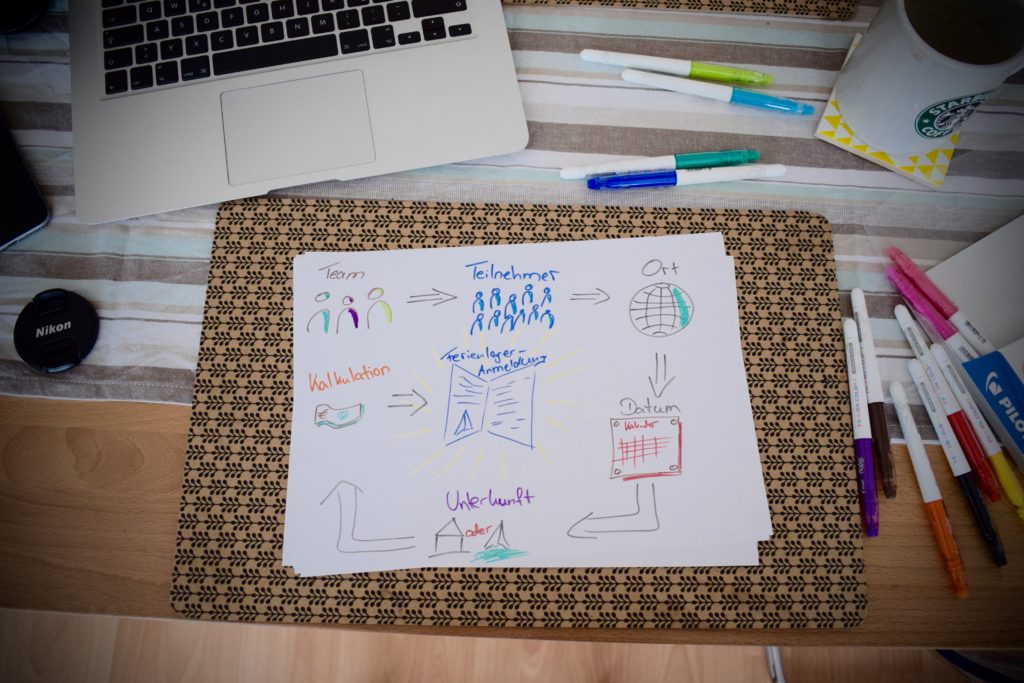 STARBUCKS
Nikon
Team
Teilnehmer
Ort
Ferienlager-
Anmeldung
Kalkulation
Datum
Kalender
Unterkunft
oder
PILOT